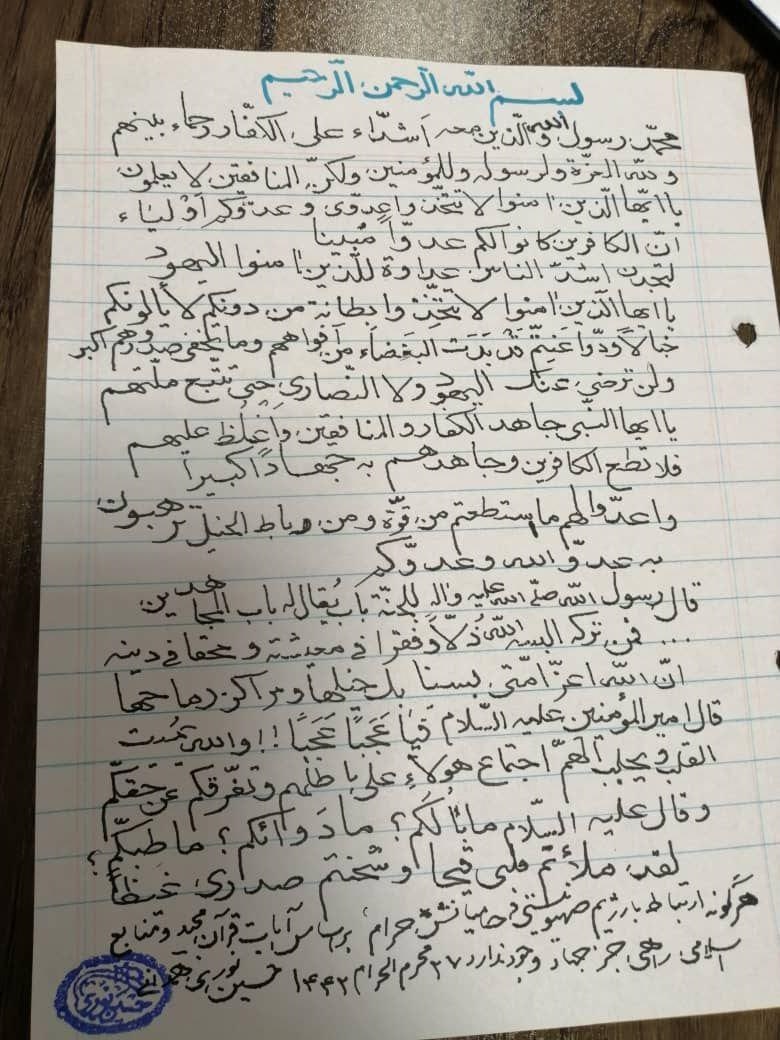 بسم الله الرحمن الرحيم
محمّد رسول الله والّذين معه اَشدّاء على الكفّار رحماء بينهم
و لله العزّة ولرسوله وللمؤمنين ولكنّ المنافقين لا يعلمون
يا ايّها الّذين ءامنوا لا تتّخذوا عدوّى و عدوّكم اَوْلياء
انّ الكافرين كانوا لكم عدوّاً مُبينا
لتجدن اشدّ الناس عداوة للّذين ءامنوا اليهود
يا ايها الّذين ءامنوا لا تتّخذوا بطانة من دونكم لا يألونكم
خبالاً ودّوا ما عنتّم قَدْ بَدَت البَغضاء من اَفواههم وما تخفى صدورهم اكبر
ولن ترضى عنك اليهود ولا النّصارى حتى تتّبع ملّتهم
يا ايها النّبى جاهد الكفار و المنافقين وَاغْلُظ عليهم
فلا تطع الكافرين وجاهدهم به جهاداً كبيراً
و اعدّوا لهم ما استطعتم من قوّة و من رباط الخيل ترهبون
به عدوّ الله و عدوّكم
قال رسول اللّه صلّى الله عليه واله للجنّة بابٌ يُقال له باب المجاهدين
... فمن تركه البسه اللّه ذُلّاً و فقرا فى معيشته و محقا فى دينه
انّ اللّه اعزّ امّتى بسنابك خيلها و مراكز رماحها
قال امير المؤمنين عليه السّلام فَيا عَجَباً عَجَباً !! و الله يُميت
القلب و يجلب الهمّ اجتماع هولاءِ على باطلهم و تفرّقكم عن حقّكم
و قال عليه السّلام ما بالُكُم؟ ما دَوائكم؟ ما طبّكم؟
لقد ملأتم قلبى قيحا و شحنتم صدرى غيظاً
هرگونه ارتباط با رژيم صهيونيستى و حاميانش حرام، براساس آيات قرآن مجيد و منابع
اسلامى راهى جز جهاد وجود ندارد ٢٧ محرم الحرام ١۴۴٢ حسين نورى همدانى